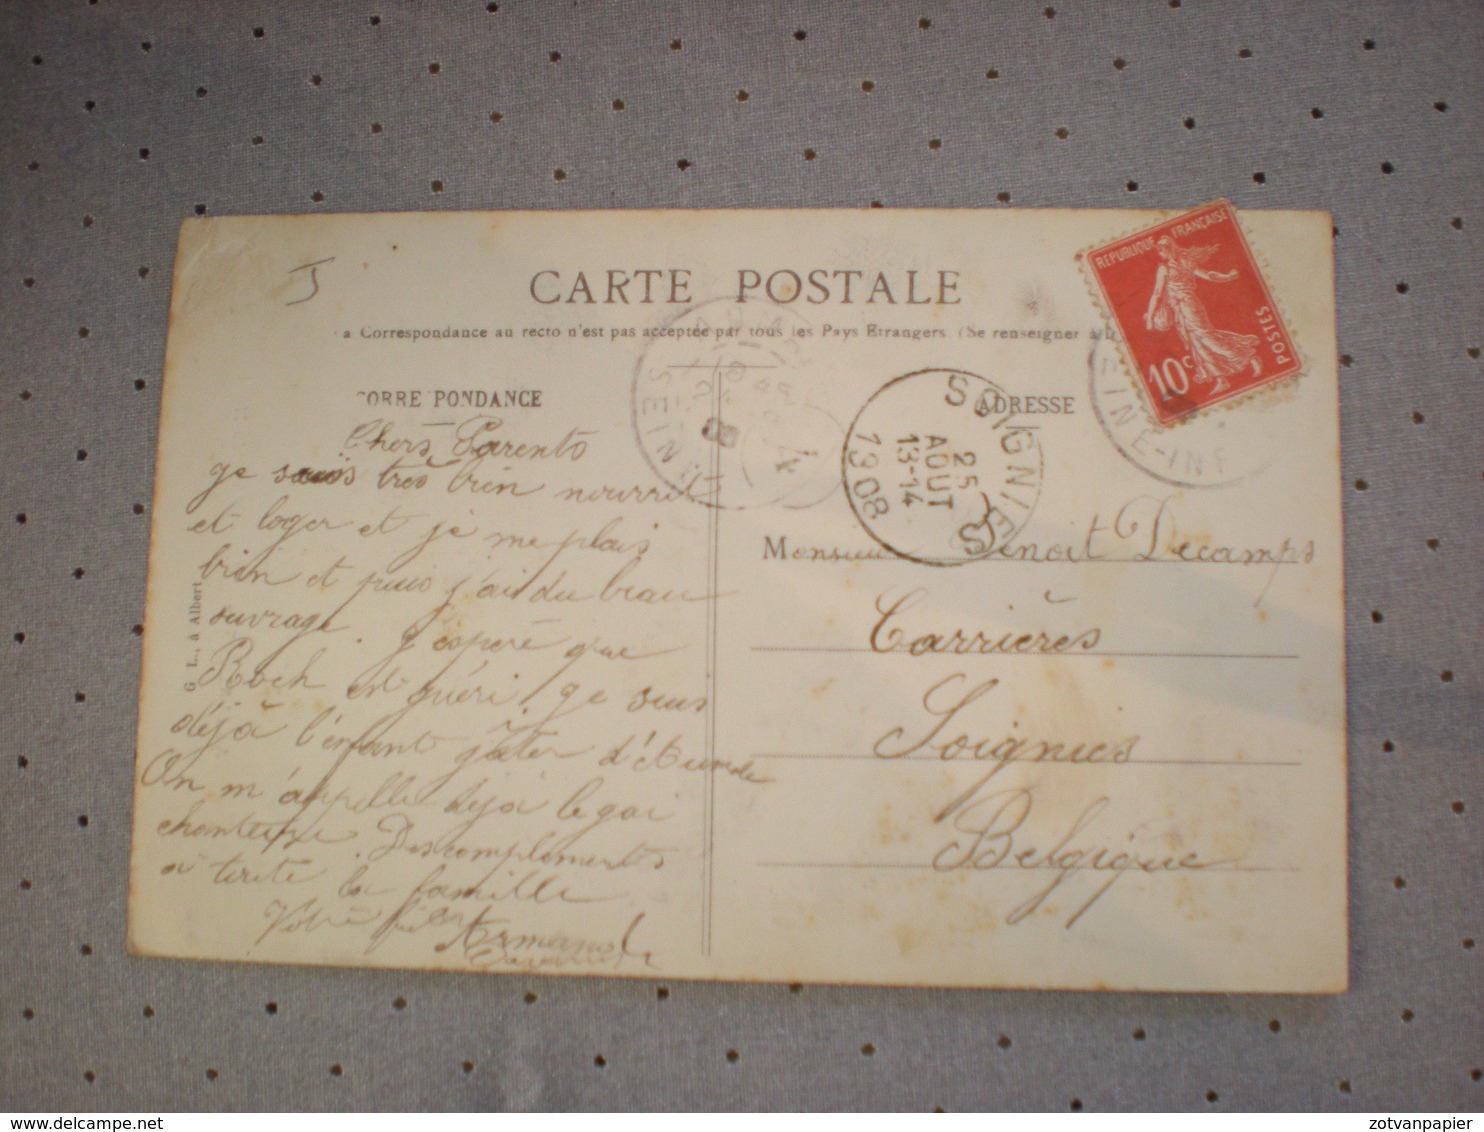 J
CARTE POSTALE
a Correspondance au recto n'est pas acceptée par tous les Pays Etrangers. (Se renseigner à
CORRE PONDANCE
ADRESSE
Chers Parents
ge suis très bien nourrit
et loger et je me plais
bien et puis j'ai du beau
ouvrage. J'esperè que
Roch est guéri, ge suis
déjà l'enfant gâter d'
On m'appelle déjà le gai
chanteur. Des compliments
a toute la famille
Votre fils Armand
G. L., à Albert
Monsieur Benoit Decamps
Carrières
Soignies
Belgique
SOIGNIES
25
AOUT
13-14
1908
SEINE-INF
REPUBLIQUE FRANÇAISE
POSTES
10c
EINE-INF
zotvanpapier